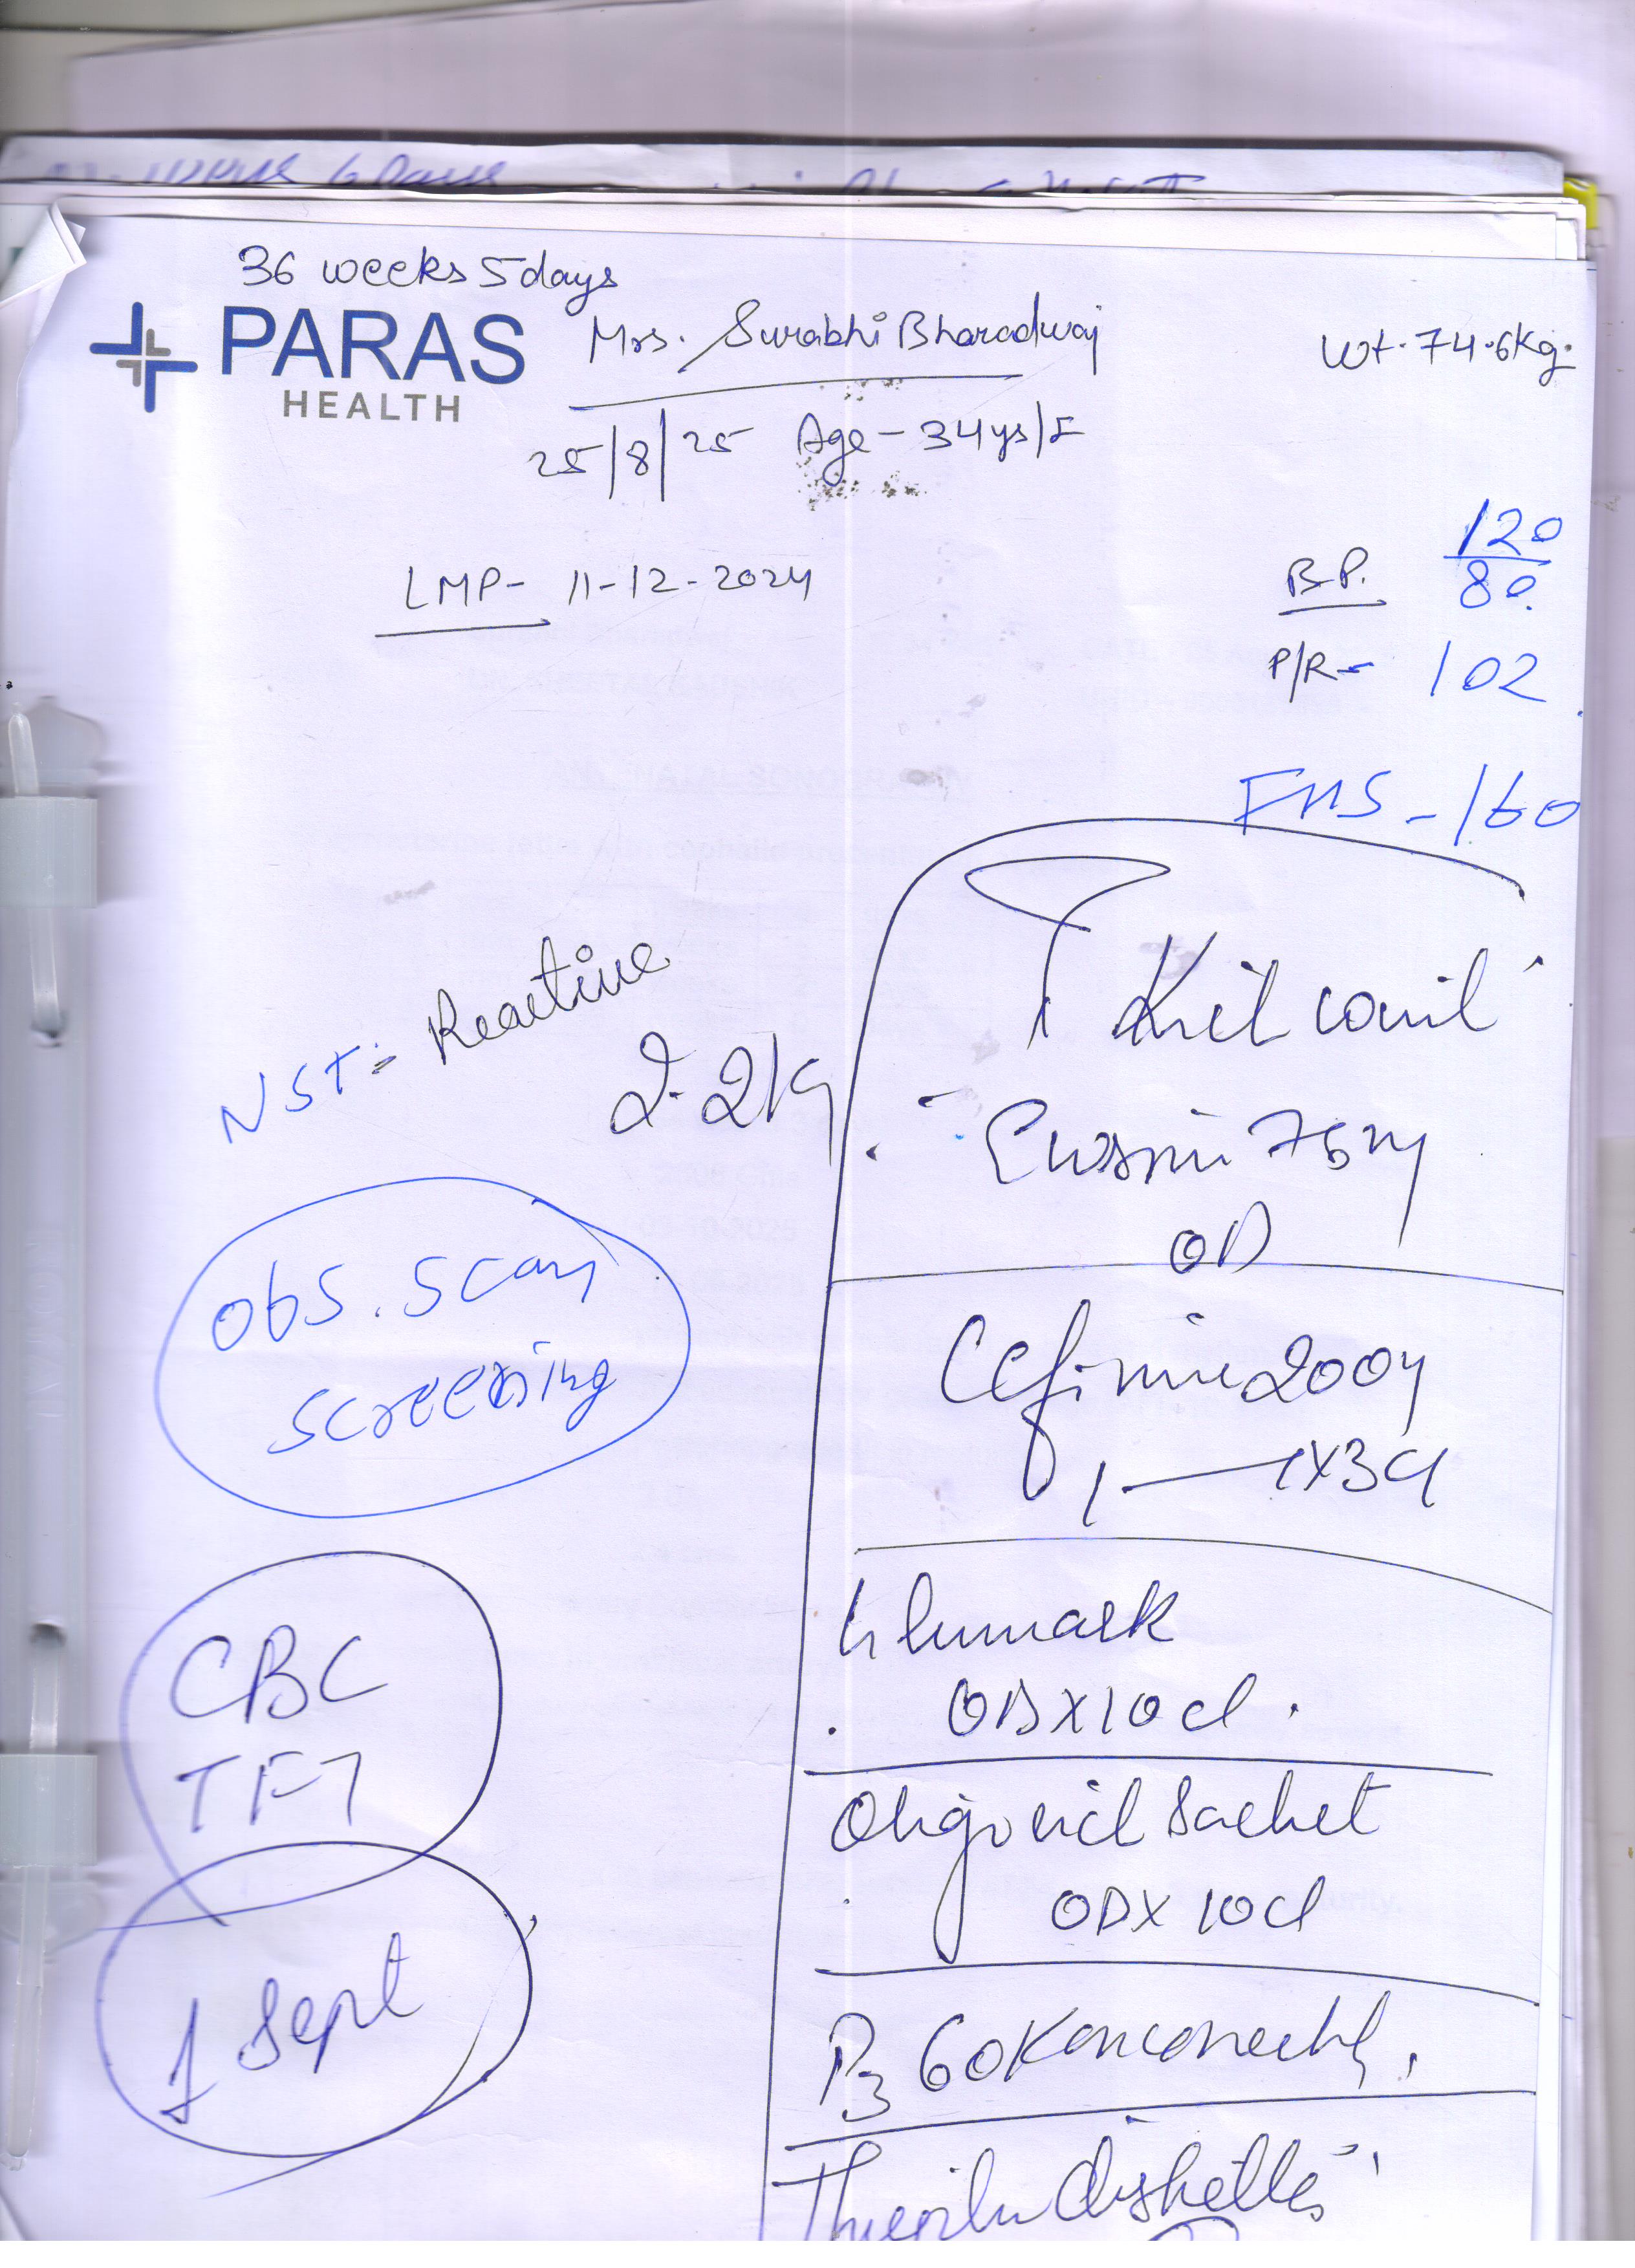 36 weeks 5days
PARAS
HEALTH
Mrs. Surabhi Bharadwaj
Wt. 74.6kg.
25/8/25 Age - 34ys/F
LMP- 11-12-2024
B.P. 120/80.
P/R- 102
FHS - 160
NST:- Reactive
2.2kg
Ecosprin 75mg
OD
obs. scan
screening
200mg
1 — 1x3d
CBC
TFT
ODX10d.
Sachet
ODX 10d
1 Sept
P3 60K once
diskettes